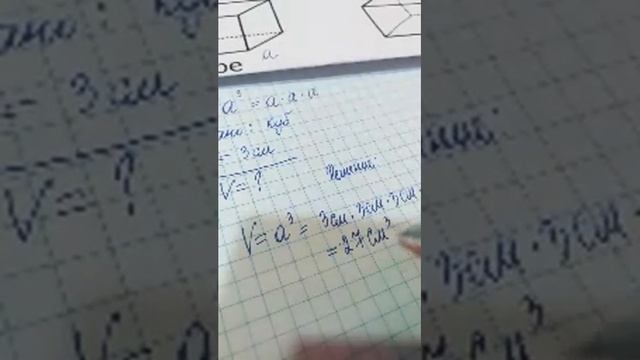 a
a³ = a · a · a
куб
= 3 см
V = ?
Решение:
V = a³ = 3 см · 3 см · 3 см
= 27 см³